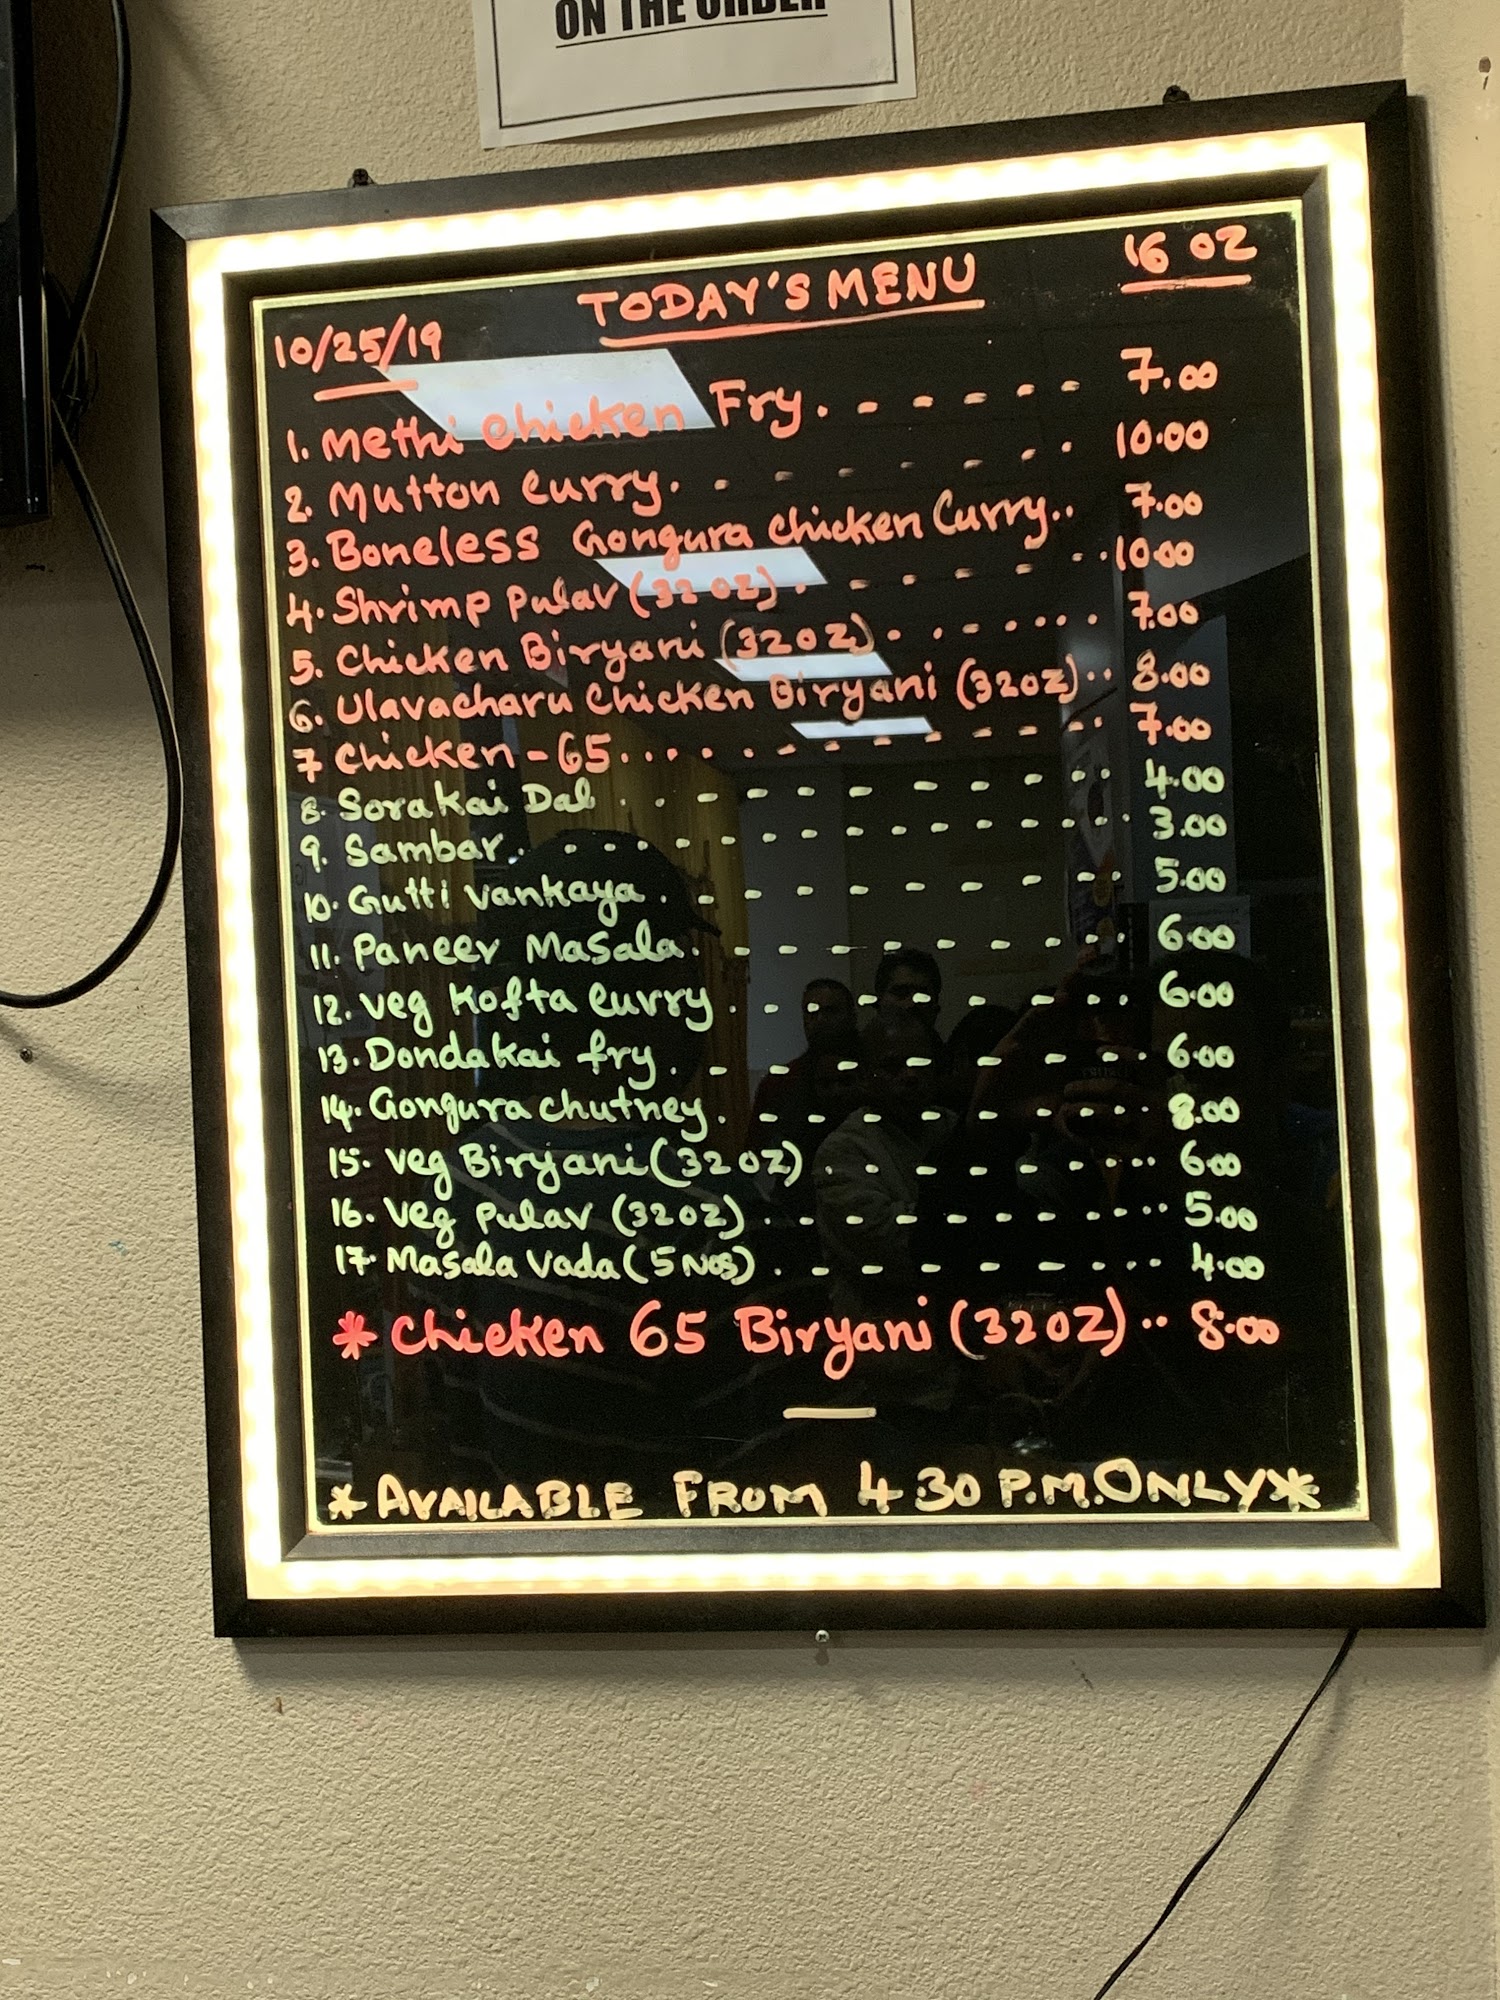 ON THE ORDER
TODAY'S MENU 16 OZ
10/25/19
1. Methi Chicken Fry. - - - - - 7.00
2. Mutton Curry. - - - - - - 10.00
3. Boneless Gongura Chicken Curry.. 7.00
4. Shrimp Pulav (32 OZ) . - - - - - .. 10.00
5. Chicken Biryani (32OZ) . . - - - .... 7.00
6. Ulavacharu Chicken Biryani (32OZ) .. 8.00
7 Chicken - 65.... . - - - - - - - .. 7.00
8. Sorakai Dal . . - - - - - - - .. 4.00
9. Sambar. . . . . - - - - - - - .... 3.00
10. Gutti Vankaya . - - - - - - - ... 5.00
11. Paneer Masala. - - - - - - - ... 6.00
12. Veg Kofta Curry . - - - - - - - .. 6.00
13. Dondakai fry . - - - - - - - ... 6.00
14. Gongura chutney. - - - - - - - ... 8.00
15. Veg Biryani (32OZ) . . - - - - .... 6.00
16. Veg Pulav (32OZ) . - - - - - - .... 5.00
17. Masala Vada (5 Nos) . - - - - - ... 4.00
* Chicken 65 Biryani (32OZ) .. 8.00
* AVAILABLE FROM 4.30 P.M. ONLY *